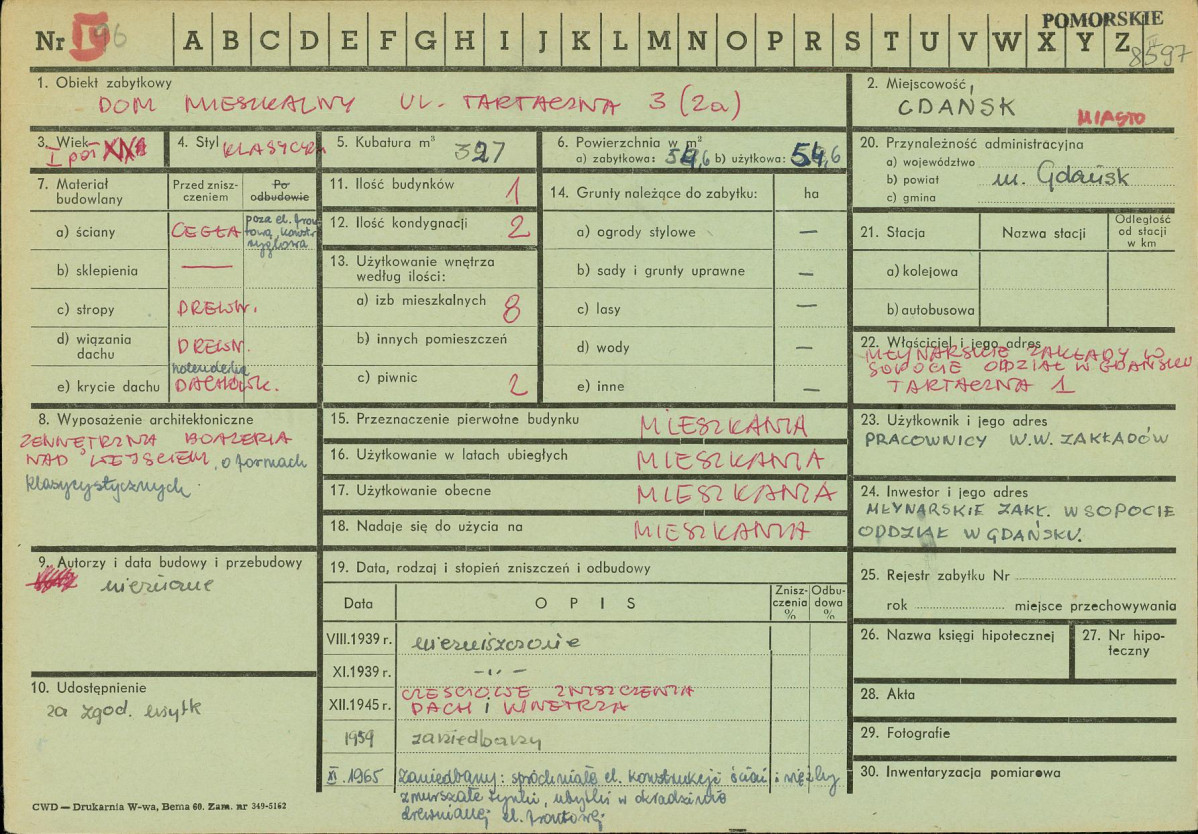 POMORSKIE
Nr I 96
A B C D E F G H I J K L M N O P R S T U V W X Y Z
8597
1. Obiekt zabytkowy
DOM MIESZKALNY UL. TARTACZNA 3 (2a)
2. Miejscowość
GDAŃSK
MIASTO
3. Wiek
I poł XIX
4. Styl KLASYCYZM
5. Kubatura m³ 327
6. Powierzchnia w m²
a) zabytkowa: 54,6 b) użytkowa: 54,6
20. Przynależność administracyjna
a) województwo
b) powiat m. Gdańsk
c) gmina
7. Materiał budowlany
Przed zniszczeniem
Po odbudowie
a) ściany CEGŁA
poza el. frontową, konstr. ryglowa
b) sklepienia —
c) stropy DREWN.
d) wiązania dachu DREWN.
e) krycie dachu holenderka DACHÓWK.
11. Ilość budynków 1
12. Ilość kondygnacji 2
13. Użytkowanie wnętrza według ilości:
a) izb mieszkalnych 8
b) innych pomieszczeń
c) piwnic 2
14. Grunty należące do zabytku: ha
a) ogrody stylowe —
b) sady i grunty uprawne —
c) lasy —
d) wody —
e) inne —
21. Stacja
Nazwa stacji
Odległość od stacji w km
a) kolejowa
b) autobusowa
22. Właściciel i jego adres
MŁYNARSKIE ZAKŁADY W
SOPOCIE ODDZIAŁ W GDAŃSKU
TARTACZNA 1
8. Wyposażenie architektoniczne
ZEWNĘTRZNA BOAZERIA
NAD WEJŚCIEM, o formach
klasycystycznych.
15. Przeznaczenie pierwotne budynku MIESZKANIA
16. Użytkowanie w latach ubiegłych MIESZKANIA
17. Użytkowanie obecne MIESZKANIA
18. Nadaje się do użycia na MIESZKANIA
23. Użytkownik i jego adres
PRACOWNICY W.W. ZAKŁADÓW
24. Inwestor i jego adres
MŁYNARSKIE ZAKŁ. W SOPOCIE
ODDZIAŁ W GDAŃSKU.
9. Autorzy i data budowy i przebudowy
nieznane
19. Data, rodzaj i stopień zniszczeń i odbudowy
Data
OPIS
Zniszczenia %
Odbudowa %
VIII.1939 r. niezniszczone
XI.1939 r. -"-
XII.1945 r. CZĘŚCIOWE ZNISZCZENIA
DACH i WNĘTRZA
1959 zaniedbany
XI.1965 zaniedbany: spróchniałe el. konstrukcji ścian i więźby
zmurszałe tynki, ubytki w okradzinie
drewnianej el. frontowej
25. Rejestr zabytku Nr
rok miejsce przechowywania
26. Nazwa księgi hipotecznej
27. Nr hipoteczny
10. Udostępnienie
za zgod. użytk
28. Akta
29. Fotografie
30. Inwentaryzacja pomiarowa
CWD — Drukarnia W-wa, Bema 60. Zam. nr 349-5162